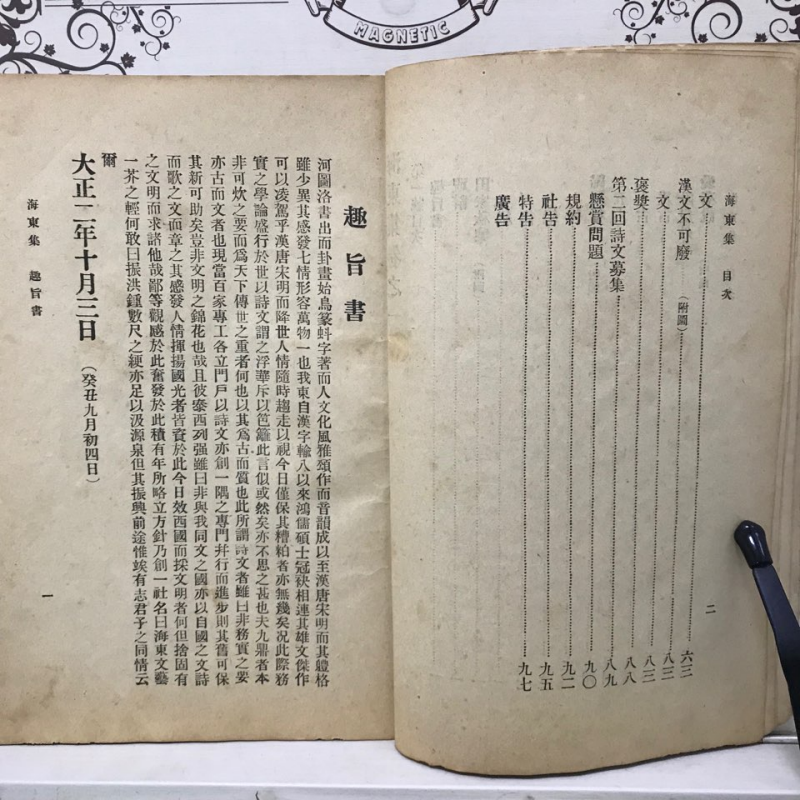 MAGNETIC
海東集 目次 二
文 六三
漢文不可廢(附圖) 八三
文 八三
褒奬 八八
第二回詩文募集 八九
懸賞問題 九〇
規約 九二
社告 九五
特告 九七
廣告
趣旨書
河圖洛書出而卦畫始鳥篆蚪字著而人文化風雅頌作而音韻成以至漢唐宋明而其軆格
雖少異其感發七情形容萬物一也我東自漢字輸入以來鴻儒碩士冠袂相連其雄文傑作
可以凌駕乎漢唐宋明而降世人情隨時趨走以視今日僅保其糟粕者亦無幾矣况此際務
實之學論盛行於世以詩文謂之浮華斥以笆籬此言似或然矣亦不思之甚也夫九鼎者本
非可炊之要而爲天下傳世之重者何也以其爲古而質也此所謂詩文者雖曰非務實之要
亦古而文者也現當百家專工各立門戶以詩文亦創一隅之專門幷行而進步則其舊可保
其新可助矣豈非文明之錦花也哉且彼泰西列强雖曰非與我同文之國亦以自國之文詩
而歌之文而章之其感發人情揮揚國光者皆資於此今日效西國而採文明者何但捨固有
之文明而求諸他哉鄙等觀感於此奮發於此積有年所略立方針乃創一社名曰海東文藝
一芥之輕何敢曰振洪鍾數尺之綆亦足以汲源泉但其振興前途惟竢有志君子之同情云
爾
大正二年十月三日(癸丑九月初四日)
海東集 趣旨書 一